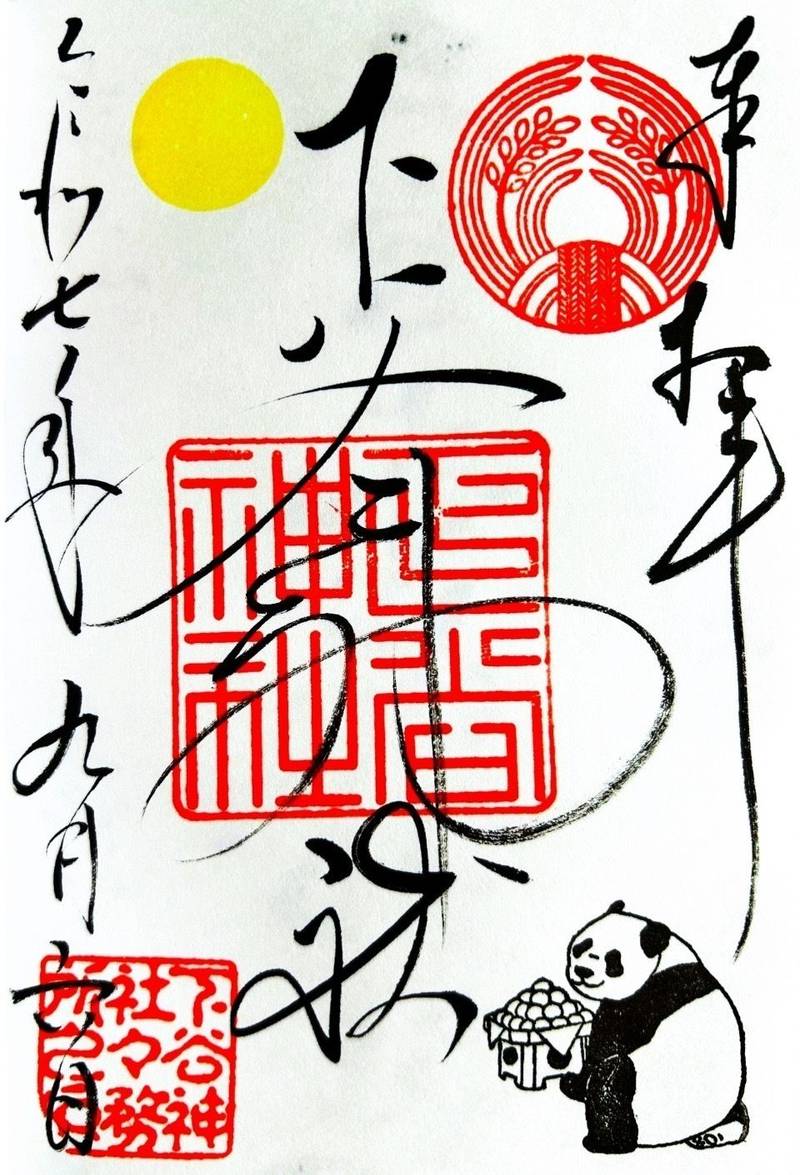 奉拝
下谷神社
令和七年九月六日
下谷
神社
下谷神
社々務
所之印